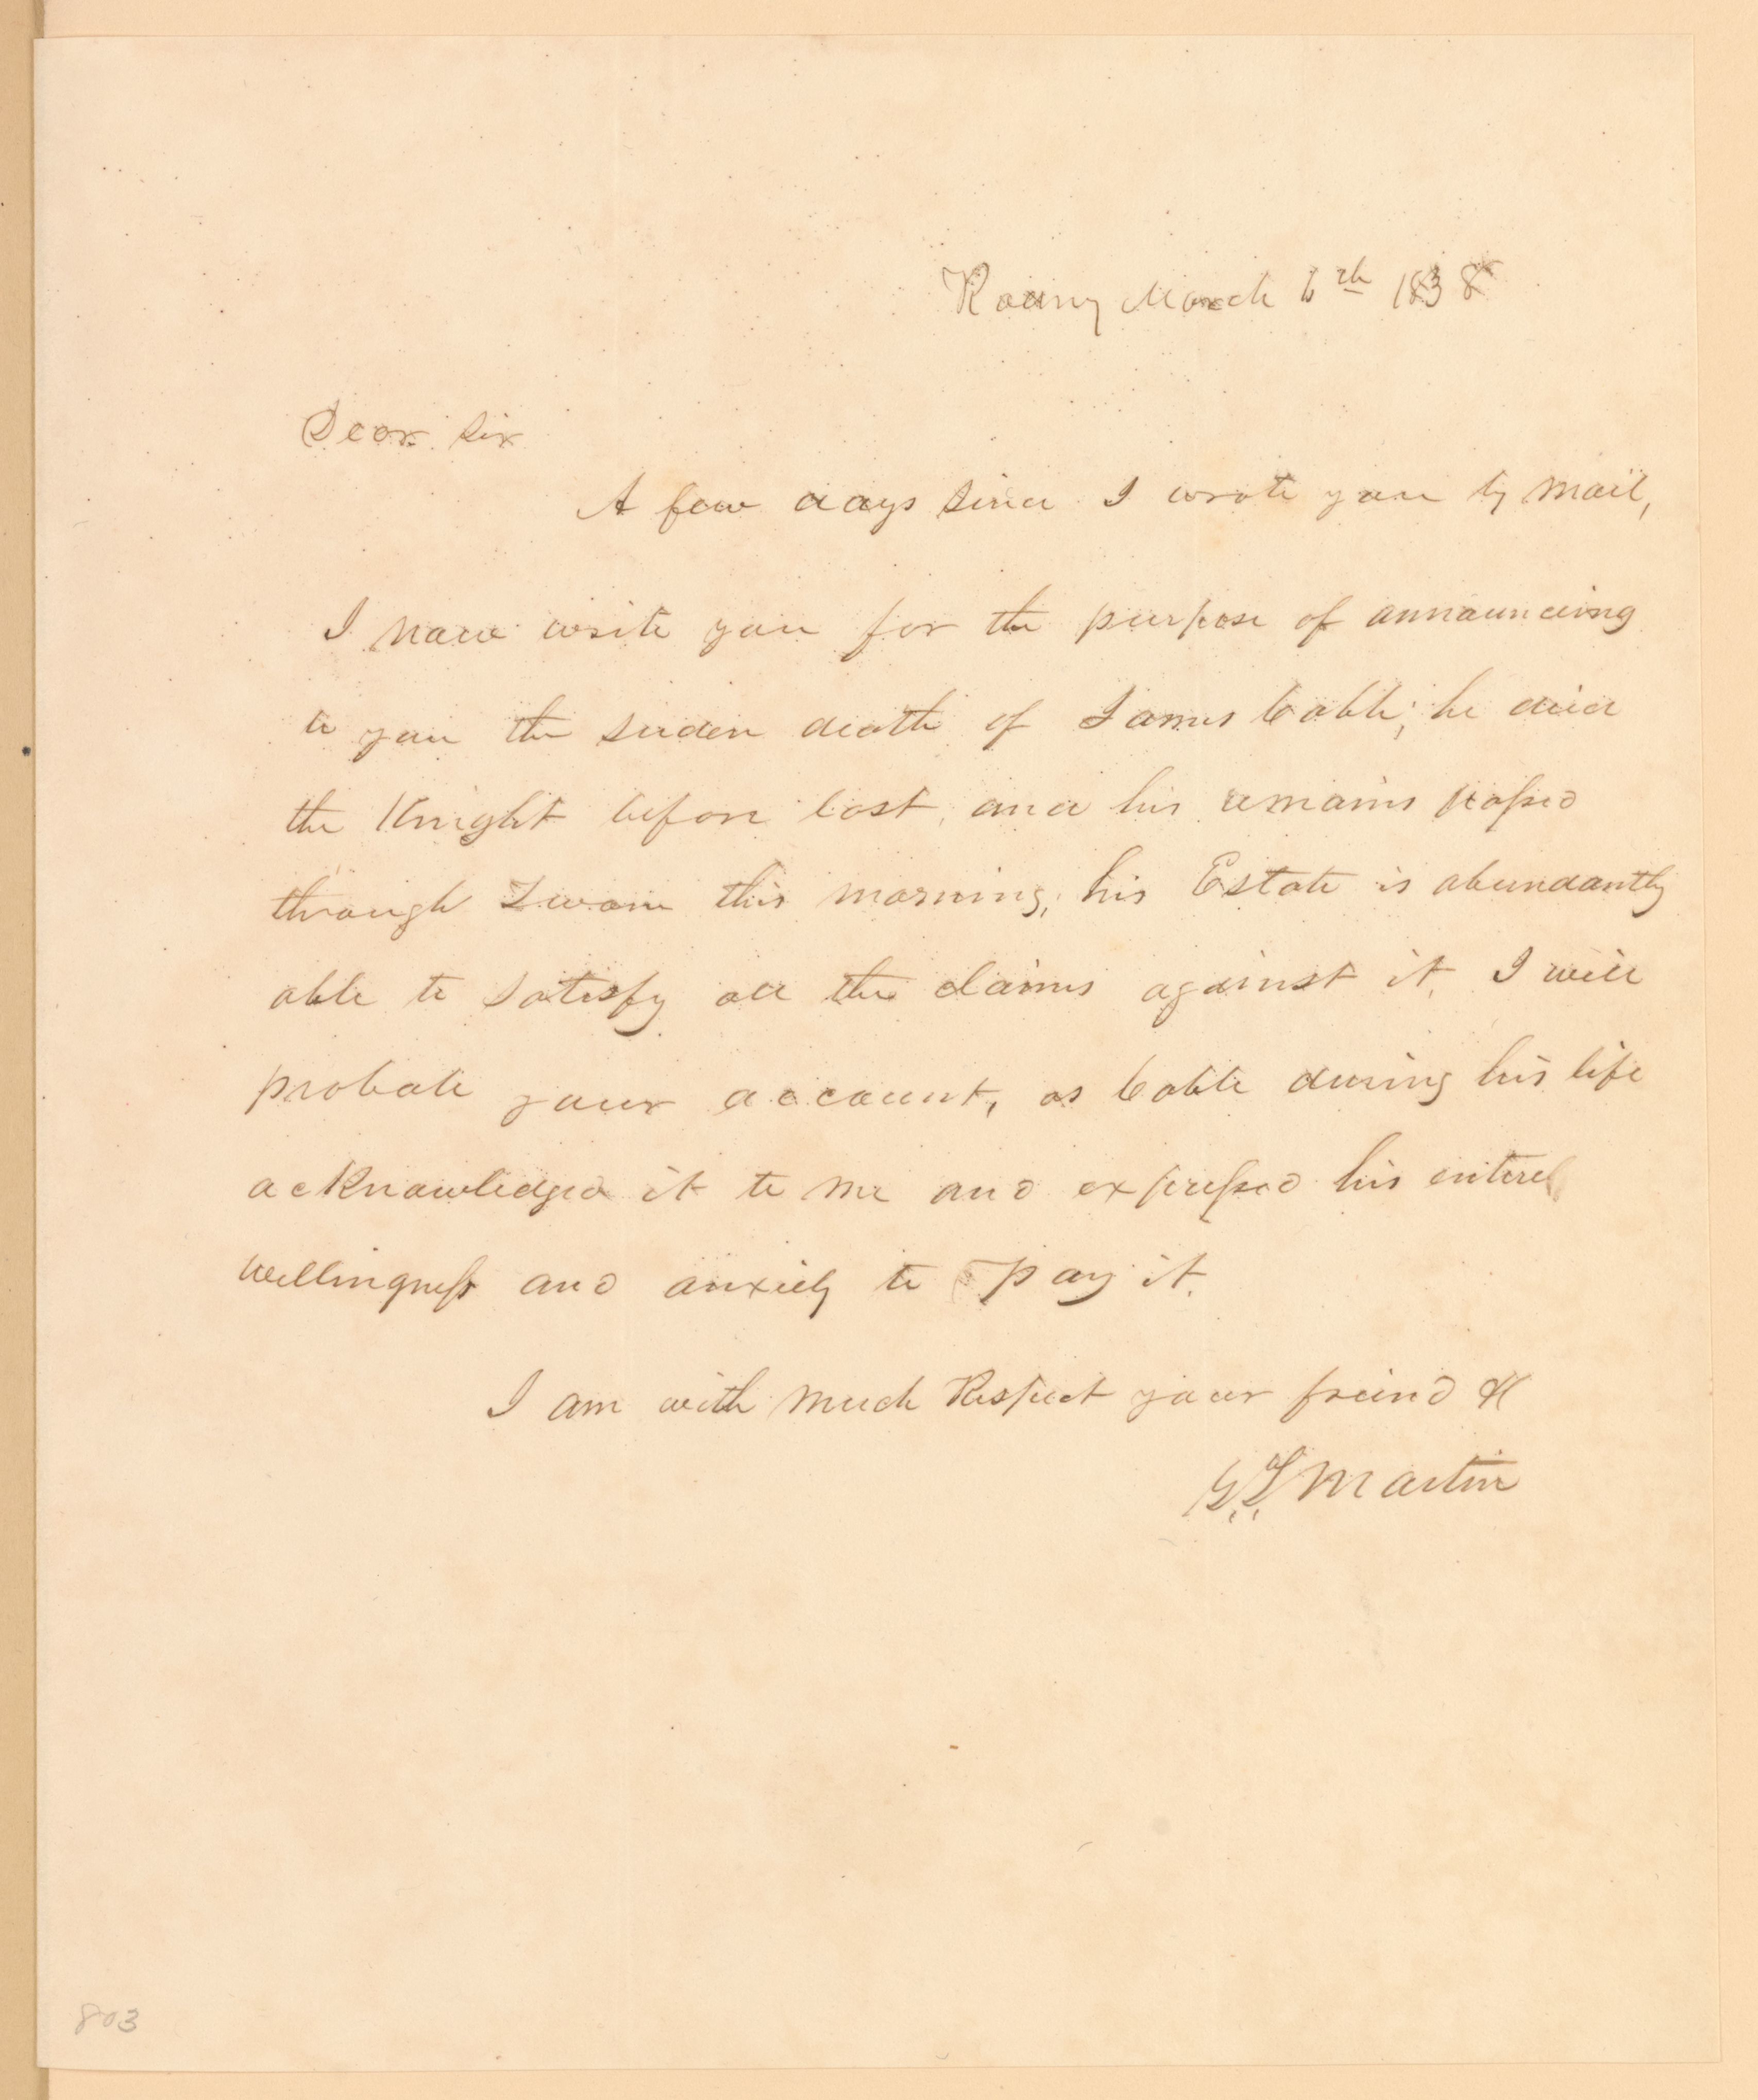 Rodny March 6th 1838
Dear Sir
A few days since I wrote you by mail,
I now write you for the purpose of announcing
to you the suden death of James Cable; he died
the Knight before last, and his remains passed
through Town this morning, his Estate is abundantly
able to satisfy all the claims against it, I will
probate your account, as Cable during his life
acknowledged it to me and expressed his entire
willingness and anxiety to pay it.
I am with much Respect your freind &c
Martin
803